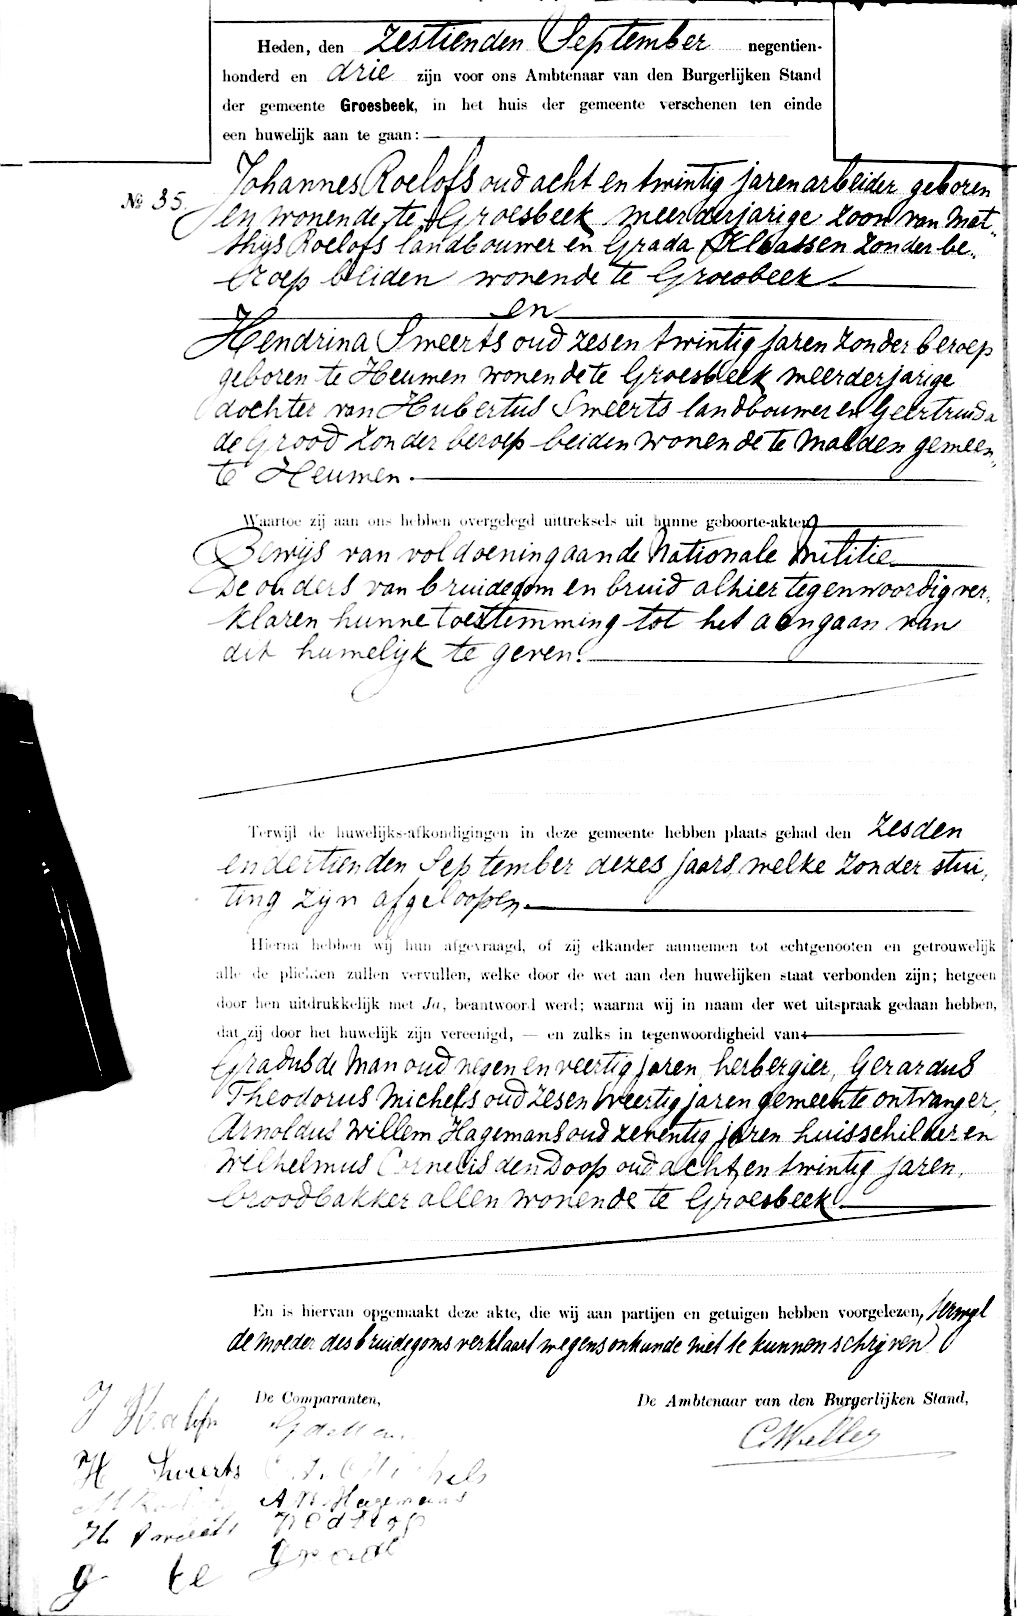 Heden, den zestienden September negentien-
honderd en drie zijn voor ons Ambtenaar van den Burgerlijken Stand
der gemeente Groesbeek, in het huis der gemeente verschenen ten einde
een huwelijk aan te gaan:
№ 35.
Johannes Roelofs oud acht en twintig jaren arbeider geboren
en wonende te Groesbeek meerderjarige zoon van Mat-
thijs Roelofs landbouwer en Grada Klaassen zonder be-
roep beiden wonende te Groesbeek
en
Hendrina Smeerts oud zes en twintig jaren zonder beroep
geboren te Heumen wonende te Groesbeek meerderjarige
dochter van Hubertus Smeerts landbouwer en Geertruida
de Grood zonder beroep beiden wonende te Malden gemeen-
te Heumen.
Waartoe zij aan ons hebben overgelegd uittreksels uit hunne geboorte-akten
Bewijs van voldoening aan de Nationale Militie.
De ouders van bruidegom en bruid alhier tegenwoordig ver-
klaren hunne toestemming tot het aangaan van
dit huwelijk te geven.
Terwijl de huwelijks-afkondigingen in deze gemeente hebben plaats gehad den zesden
en dertienden September dezes jaars, welke zonder stui-
ting zijn afgeloopen.
Hierna hebben wij hun afgevraagd, of zij elkander aannemen tot echtgenooten en getrouwelijk
alle de plichten zullen vervullen, welke door de wet aan den huwelijken staat verbonden zijn; hetgeen
door hen uitdrukkelijk met Ja, beantwoord werd; waarna wij in naam der wet uitspraak gedaan hebben,
dat zij door het huwelijk zijn vereenigd, — en zulks in tegenwoordigheid van:
Gradus de Man oud negen en veertig jaren, herbergier, Gerardus
Theodorus Michels oud zes en veertig jaren gemeente ontvanger,
Arnoldus Willem Hagemans oud zeventig jaren huisschilder en
Wilhelmus Cornelis den Doop oud acht en twintig jaren,
broodbakker allen wonende te Groesbeek
En is hiervan opgemaakt deze akte, die wij aan partijen en getuigen hebben voorgelezen, terwijl
de moeder des bruidegoms verklaart wegens onkunde niet te kunnen schrijven
De Comparanten,
De Ambtenaar van den Burgerlijken Stand,
H Smeerts
Michels
A W Hagemans